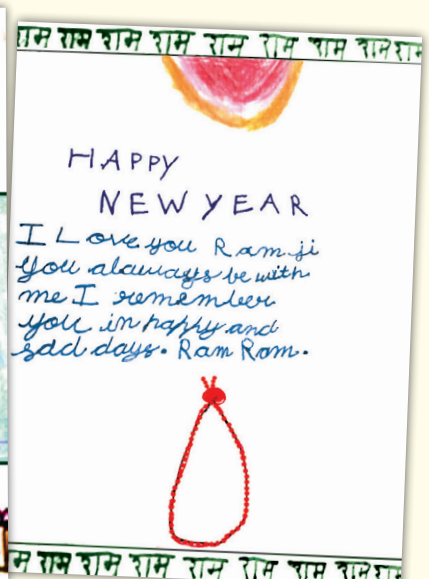 राम राम राम राम राम राम राम राम राम
HAPPY
NEW YEAR
I Love you Ram ji
you alaways be with
me I remember
you in happy and
sad days. Ram Ram.
राम राम राम राम राम राम राम राम राम